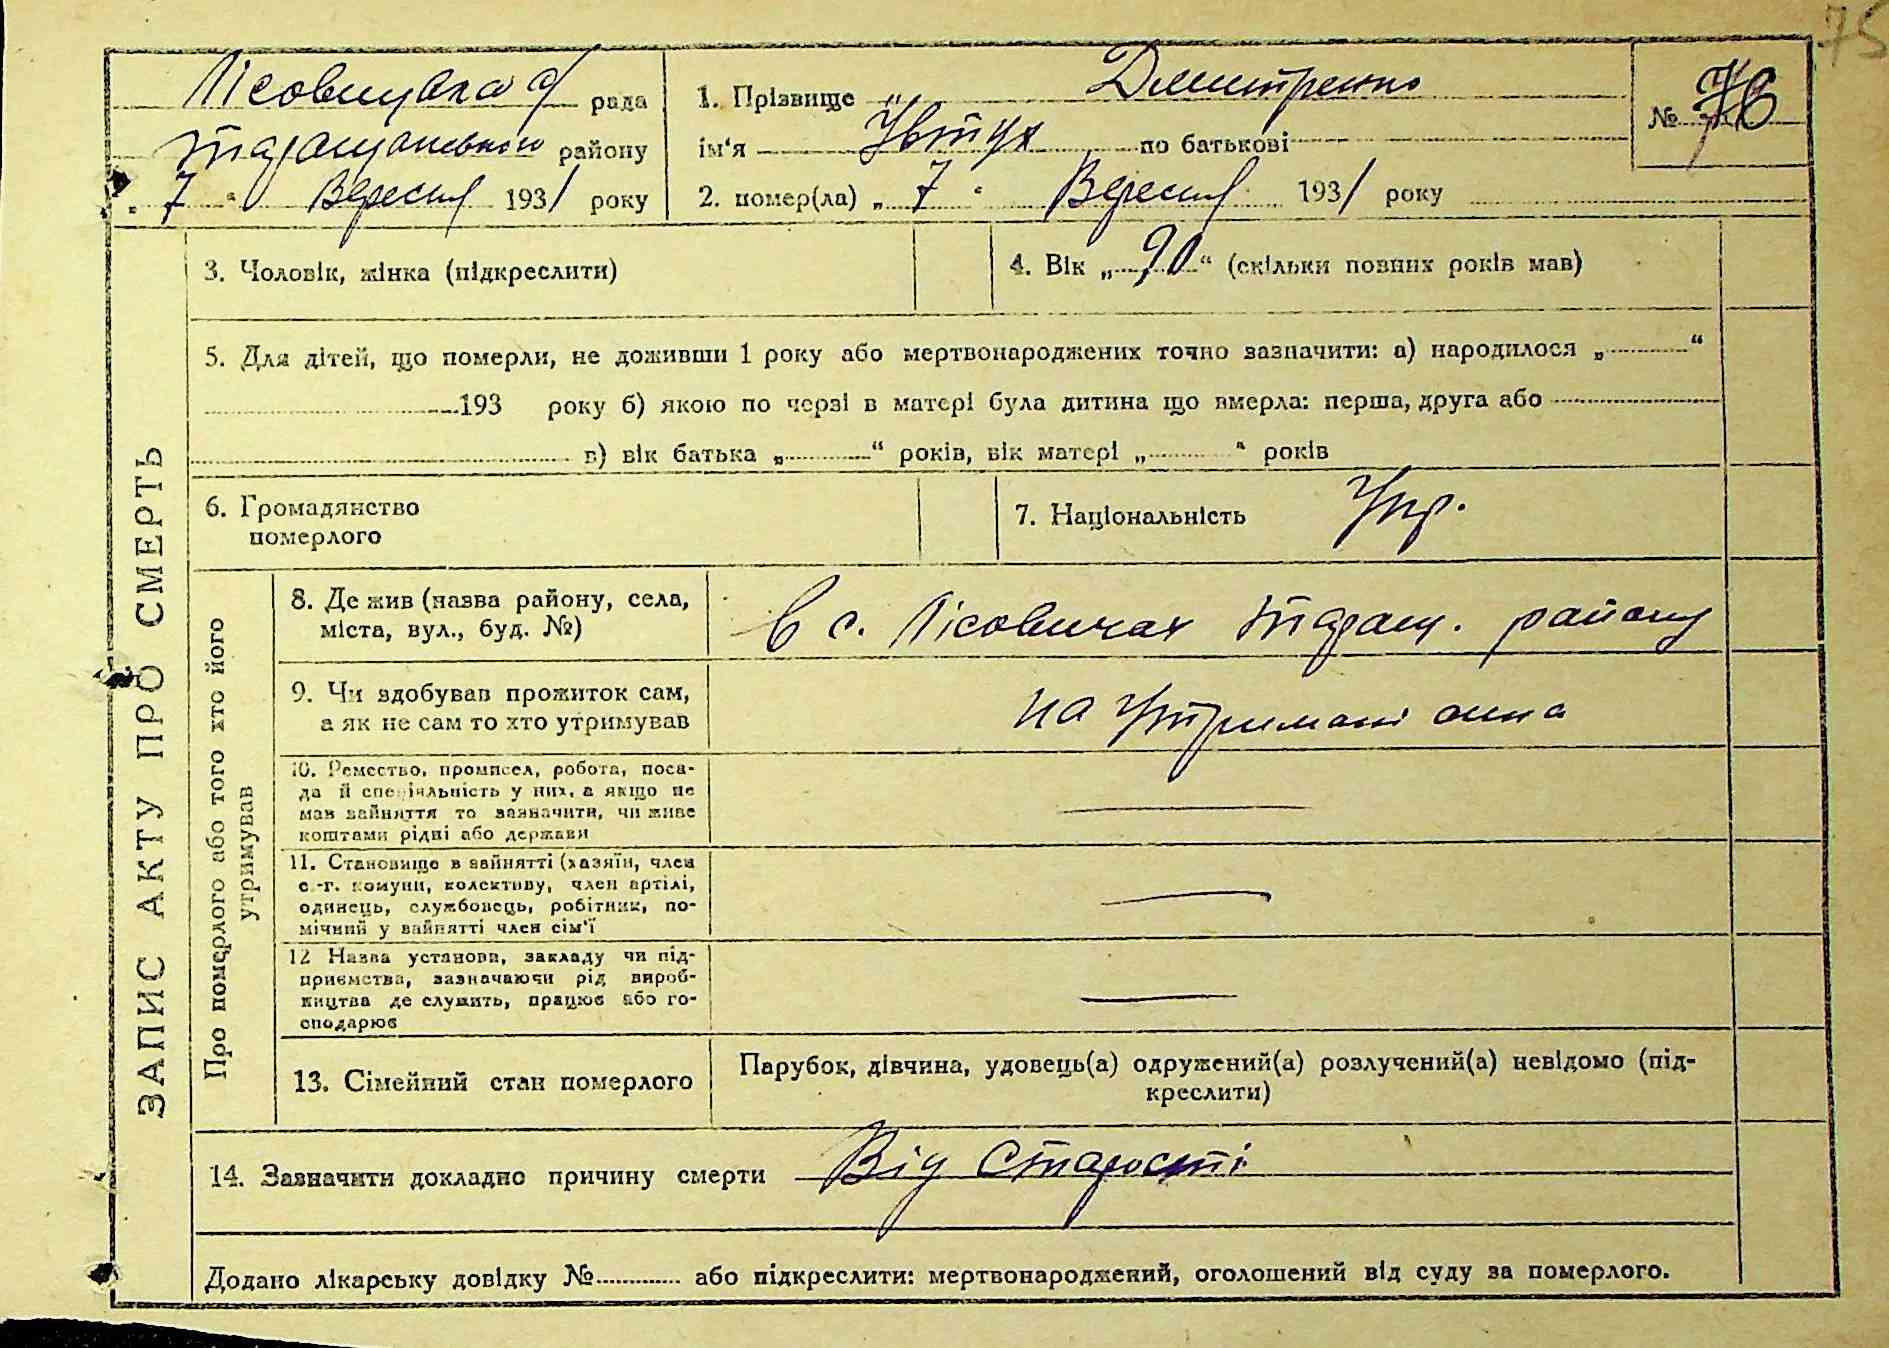 75
Лісовицька с/ рада
Таращанського району
„ 7 " Вересня 1931 року
1. Прізвище Дмитренко
ім'я Явтух по батькові
2. помер(ла) „ 7 " Вересня 1931 року
№ 76
ЗАПИС АКТУ ПРО СМЕРТЬ
3. Чоловік, жінка (підкреслити)
4. Вік „ 90 " (скільки повних років мав)
5. Для дітей, що померли, не доживши 1 року або мертвонароджених точно зазначити: а) народилося „ "
193 року б) якою по черзі в матері була дитина що вмерла: перша, друга або
в) вік батька „ " років, вік матері „ " років
6. Громадянство
померлого
7. Національність Укр.
Про померлого або того хто його
утримував
8. Де жив (назва району, села,
міста, вул., буд. №)
в с. Лісовичах Таращ. району
9. Чи здобував прожиток сам,
а як не сам то хто утримував
на Утримані сина
10. Ремество, промисел, робота, поса-
да й спеціяльність у них, а якщо не
мав зайняття то зазначити, чи живе
коштами рідні або держави
11. Становище в зайнятті (хазяїн, член
с.-г. комуни, колективу, член артілі,
одинець, службовець, робітник, по-
мічний у зайнятті член сім'ї
12 Назва установи, закладу чи під-
приємства, зазначаючи рід вироб-
ництва де служить, працює або го-
сподарює
13. Сімейний стан померлого
Парубок, дівчина, удовець(а) одружений(а) розлучений(а) невідомо (під-
креслити)
14. Зазначити докладно причину смерти Від Старості
Додано лікарську довідку № або підкреслити: мертвонароджений, оголошений від суду за померлого.